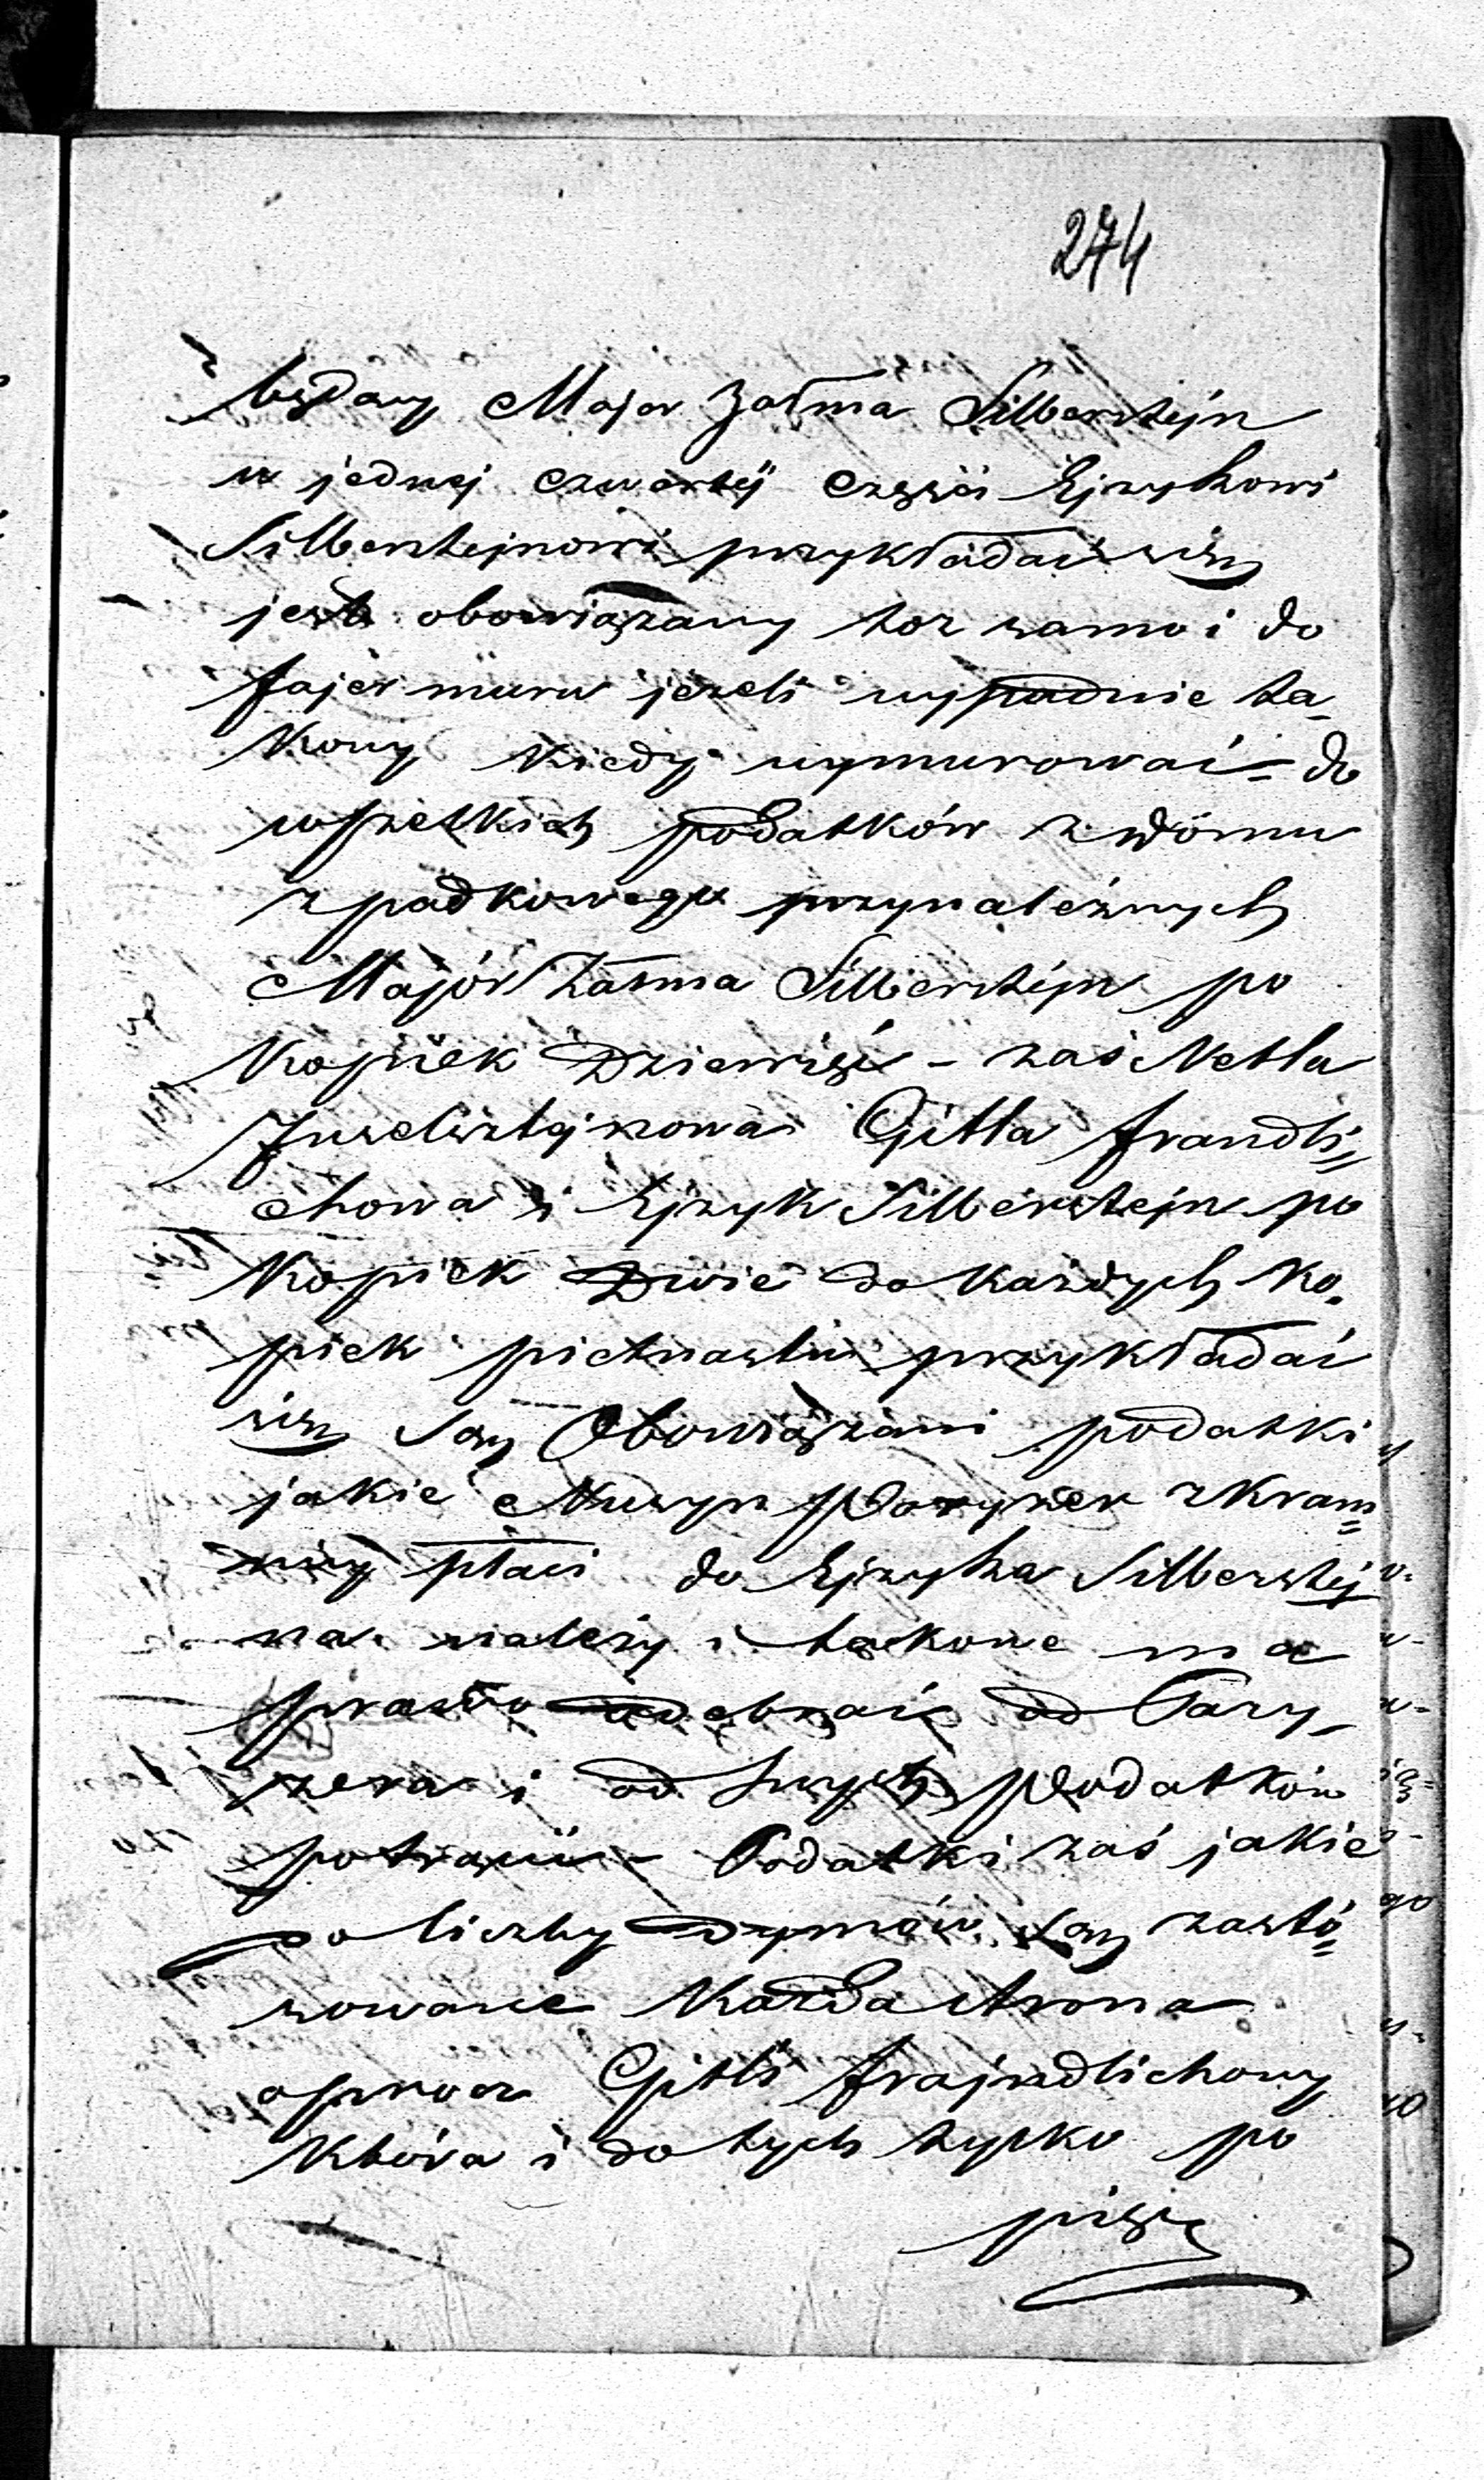 274
będący Major Załma Silbersztejn
w jednej czwartéj części Ejzykowi
Silbersztejnowi przykładać się
jest obowiązany toż samo i do
fajermuru jeżeli wypadnie ta-
kowy kiedy wymurować – do
wszelkich podatków z domu
spadkowego przynależnych
Major Załma Silbersztejn po
kopiiek dziewięć – zaś Netla
Gitla Frandli=
chowa i Ejzyk Silbersztejn po
kopiek dwie do każdych ko-
piek pietnastu przykładać
się są obowiązani podatki
jakie Nusyn Paryzer z kram=
nicy płaci do Ejzyka Silbersztej
na należy i takowe ma
prawo odebrać od Pary-
zera i od swych podatków
potrącić – Podatki zaś jakie
do liczby dymów są zasto=
sowane każda strona
oprocz Gitli Frajndlichowy
która i do tych tylko po
pięć